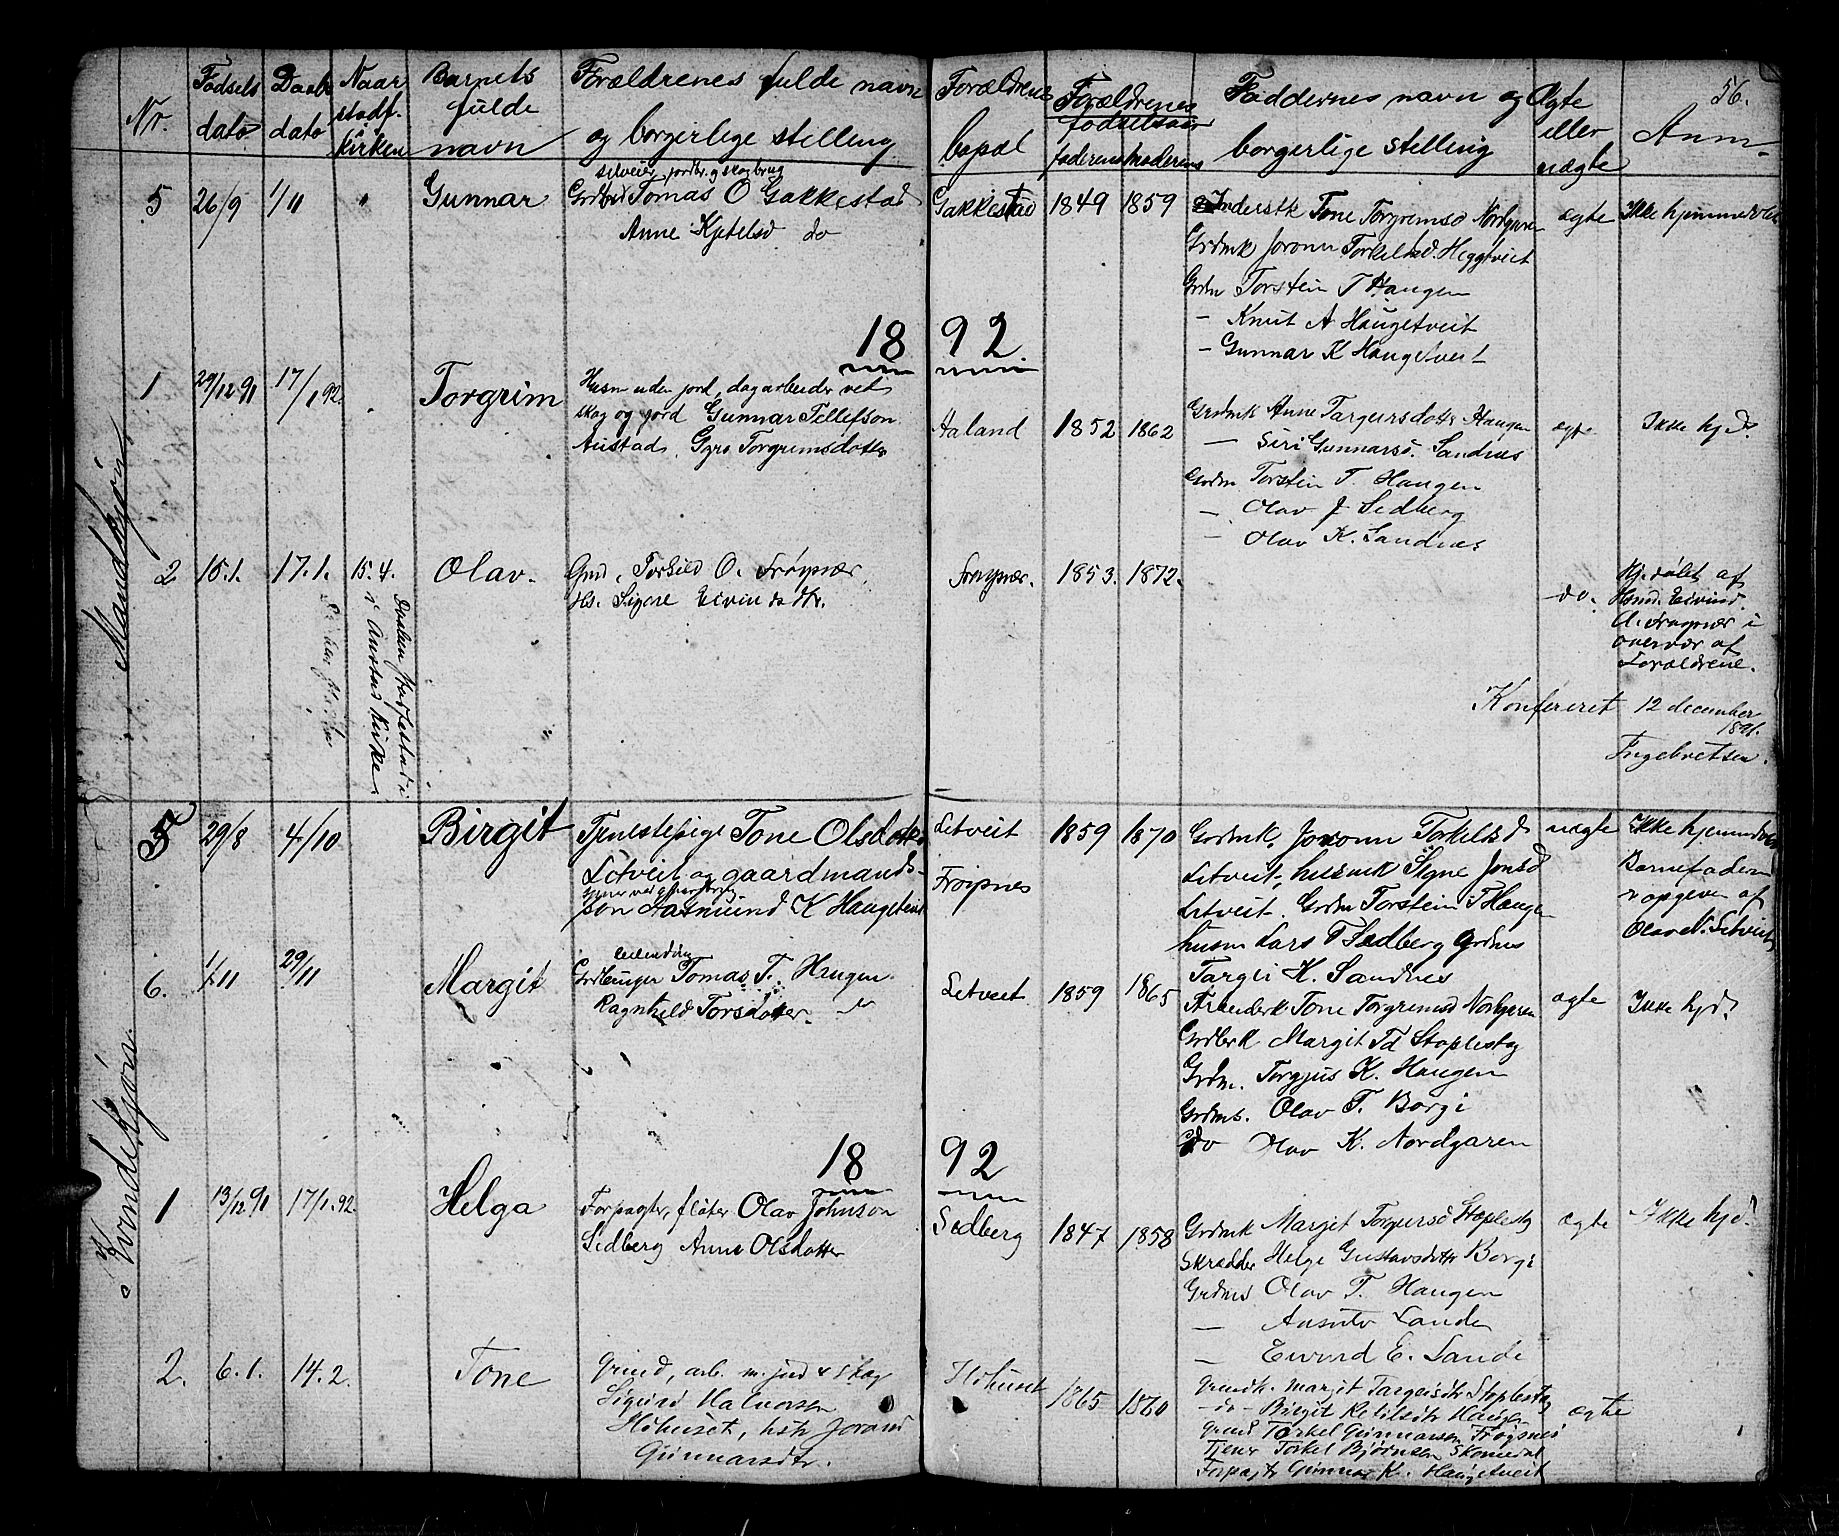 56.
Nr.
Fødsels dato
Daabs dato
Naar stadf. i kirken
Barnets fulde navn
Forældrenes fulde navn og borgerlige stilling
Forældrenes bopæl
Forældrenes fødselsaar
faderens moderens
Faddernes navn og borgerlige stilling
Ægte eller uægte
Anm.
Mandkjøn
5 26/9 1/11 Gunnar
selveier, jordbr. og skogbrug
Tomas O Gakkestad
Anne Kjetelsd do
Gakkestad 1849 1859
Tone Torgremsd Nordgaren
Grdmk Joronn Torkelsd. Heggtveit
Grdm Torstein T Haugen
— Knut A Haugetveit
— Gunnar K Haugetveit
ægte
Ikke hjemmedøbt
1892.
1 29/12 91 17/1 92. Torgrim
Husm uden jord, dagarbeider ved
skog og jord Gunnar Tellefson
Austad, Gyro Torgrimsdotter
Aaland 1852 1862
Grdmk Anne Targjursdotter Haugen
— Siri Gunnarsd. Sandnes
Grdm Torstein T. Haugen
— Olav J Sedberg
— Olav K. Sandnes
ægte
Ikke hjd.
2 15.1. 17.1. 15.4. Olav.
Daaben stadfestad i
i Austad Kirke
Gmd. Torkild O. Frøysnær,
Hs. Signe Eivindsdtr.
Frøysnær. 1853. 1872.
do.
Hj.døbt af
Hsmd. Eivind
A. Frøysnær i
overvær af
Forældrene.
Konfereret 12 december
1891.
Ingebretsen.
Kvindekjøn.
5 29/8 4/10 Birgit
Tjenestepige Tone Olsdotter
Litveit og gaardmands-
søn Aasmund K Haugetveit
Litveit
Frøysnes
1859 1870
Grdmk. Joronn Torkelsd
Litveit, husmk Signe Jonsd
Litveit. Grdm Torstein T Haugen
husm Lars T Sedberg grdms
Targei K. Sandnes
uægte
Ikke hjemmedøbt
Barnefaderen
opgiven af
Olav N. Litveit
6. 1/11 29/11 Margit
Tomas T. Haugen
Ragnhild Torsdotter.
Litveit 1859 1865
Tone Torgremsd Nordgaren
Grdbrk Margit Td Stoplestøg
Grdm. Torgjus K. Haugen
Grdms. Olav T. Borgi
do Olav K. Nordgaren
ægte
Ikke hjd.
1892
1 13/12 91 17/1 92. Helga
Forpagter, fløter Olav Johnson
Sedberg Anne Olsdotter
Sedberg 1847 1858
Grdmk Margit Torgursd Stoplestøg
Skrædder Helge Gustavsdotter Borgi
Grdms Olav T. Haugen
— Lande
— Eivind E. Lande
ægte
Ikke hjd.
2. 6.1. 14.2. Tone
Grmd, arb. m. jord & skog
Sigurd Halvorsen
Høhuset, hstr Jorand
Gunnarsdtr.
Høhuset 1865 1860
Grmdk. Margit Targeisdtr Stoplestøg
— do — Birgit Ketilsdtr Haugen
Grmd Torkel Gunnarsen Frøysnes
Tjener Torkel Bjørnsen Skomedal
Forpagtr Gunnar K. Haugetveit
ægte